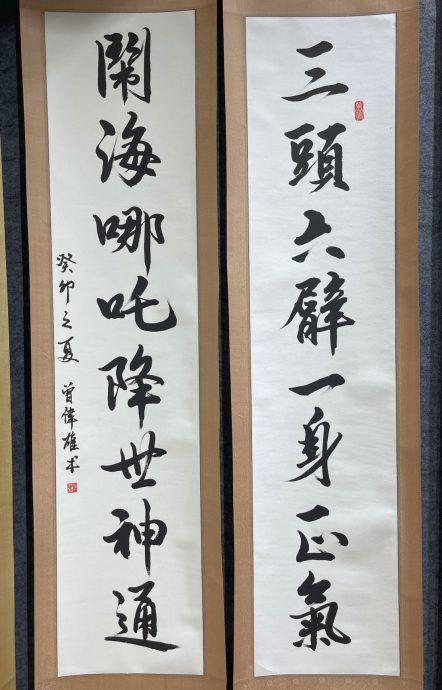 三頭六臂一身正氣
鬧海哪吒降世神通
癸卯之夏 曾偉雄书